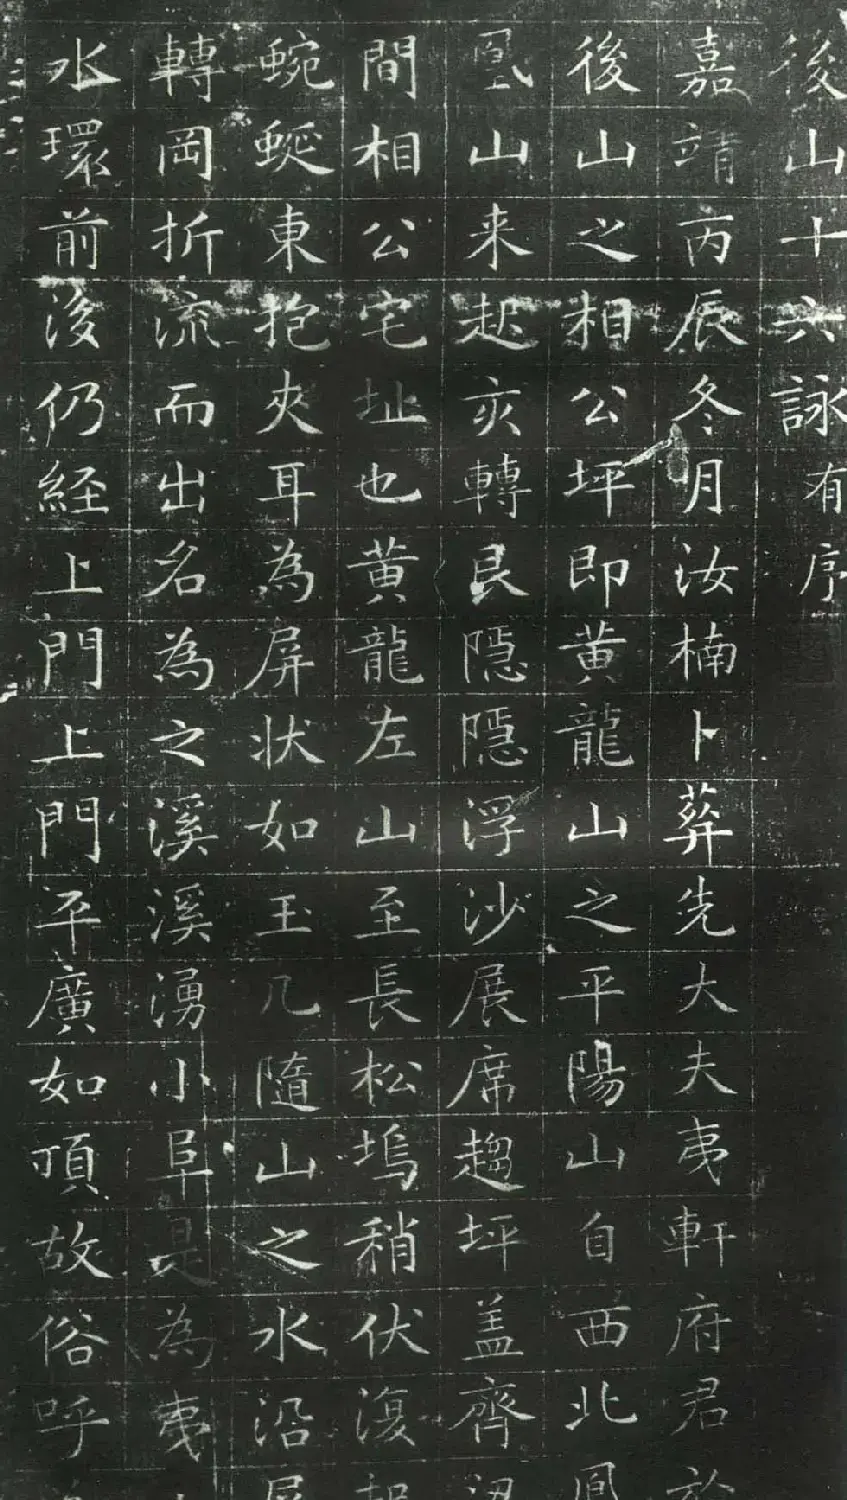 後山十六詠有序
嘉靖丙辰冬月汝楠卜葬先大夫夷軒府君於
後山之相公坪即黄龍山之平陽山自西北鳳
凰山来起亥轉艮隱隱浮沙展席趨坪盖齊
間相公宅址也黄龍左山至長松塢稍伏復
蜿蜒東抱夾耳為屏狀如玉几隨山之水沿屏
轉岡折流而出名為之溪溪湧小阜是為夷
水環前後仍経上門上門平廣如頂故俗呼